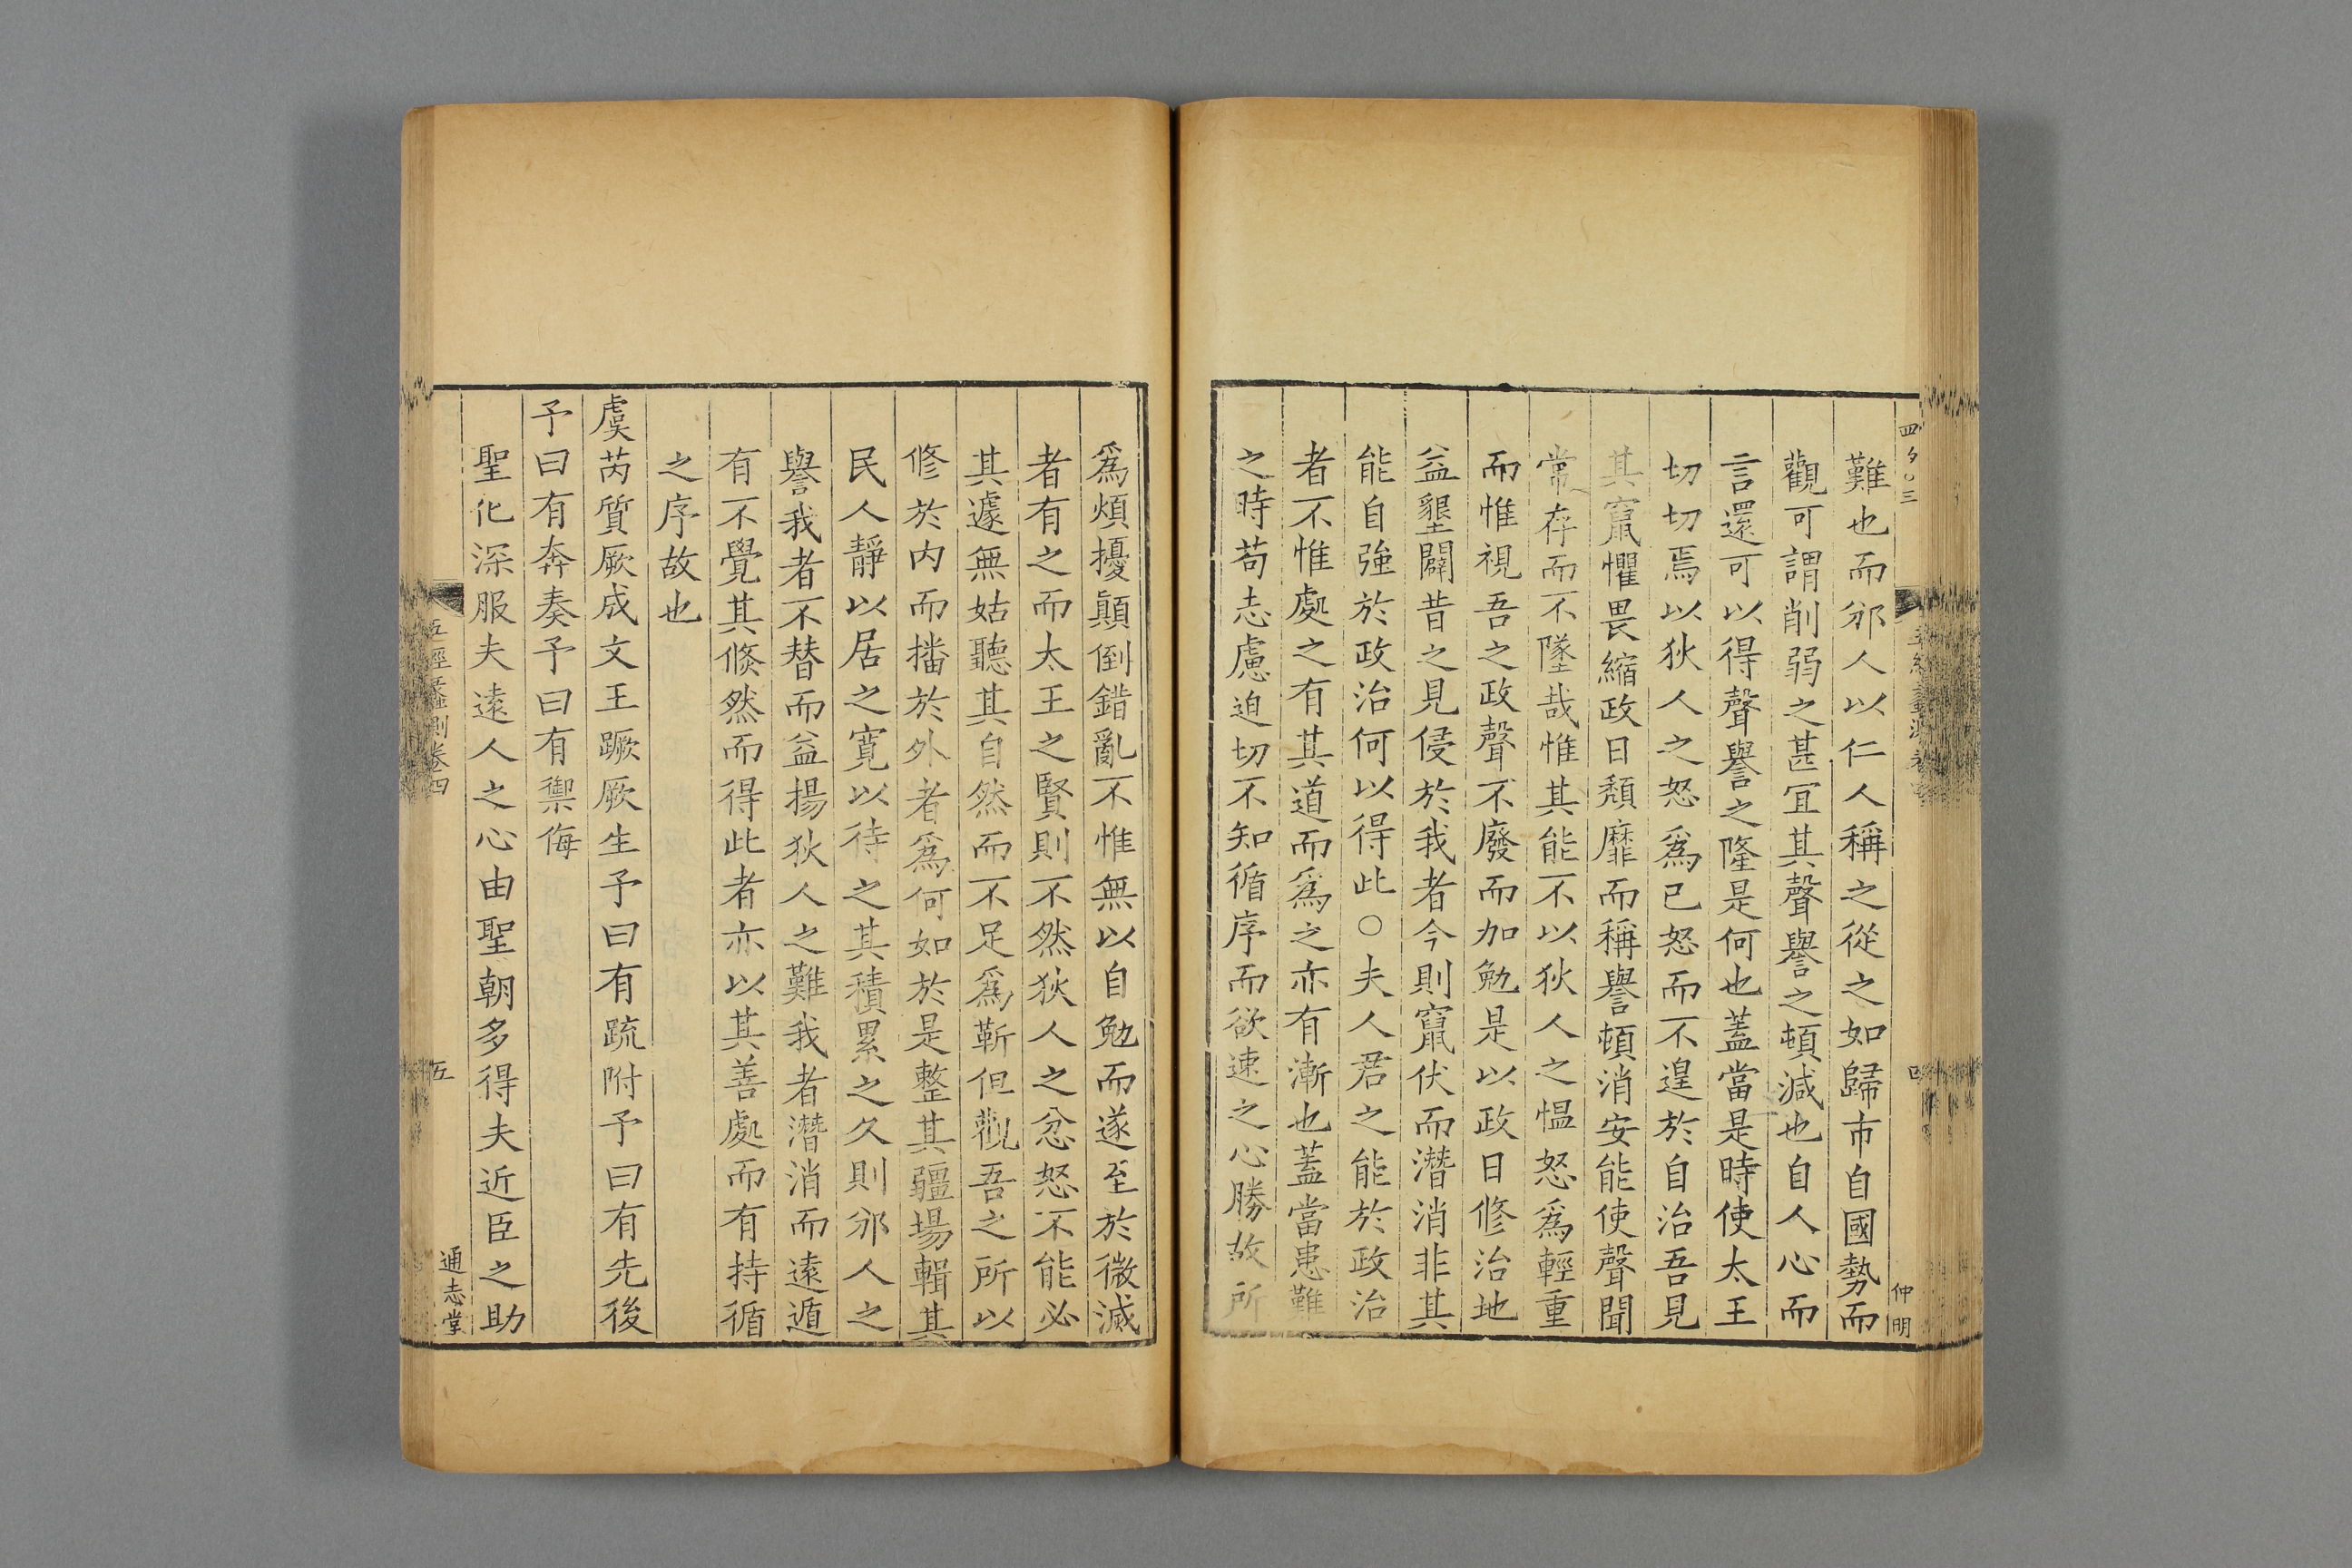 難也而邠人以仁人稱之從之如歸市自國勢而
觀可謂削弱之甚宜其聲譽之頓減也自人心而
言還可以得聲譽之隆是何也蓋當是時使太王
切切焉以狄人之怒爲已怒而不遑於自治吾見
其竄懼畏縮政日頽靡而稱譽頓消安能使聲聞
常存而不墜哉惟其能不以狄人之愠怒爲輕重
而惟視吾之政聲不廢而加勉是以政日修治地
益墾闢昔之見侵於我者今則竄伏而潛消非其
能自強於政治何以得此○夫人君之能於政治
者不惟處之有其道而爲之亦有漸也蓋當患難
之時苟志慮迫切不知循序而欲速之心勝故所
四
仲明
爲煩擾顛倒錯亂不惟無以自勉而遂至於微滅
者有之而太王之賢則不然狄人之忿怒不能必
其遽無姑聽其自然而不足爲靳但觀吾之所以
修於内而播於外者爲何如於是整其疆場輯其
民人靜以居之寬以待之其積累之久則邠人之
譽我者不替而益揚狄人之難我者潛消而遠遁
有不覺其倐然而得此者亦以其善處而有持循
之序故也
虞芮質厥成文王蹶厥生予曰有疏附予曰有先後
予曰有奔奏予曰有禦侮
聖化深服夫遠人之心由聖朝多得夫近臣之助
五經蠡測卷四
五
通志堂